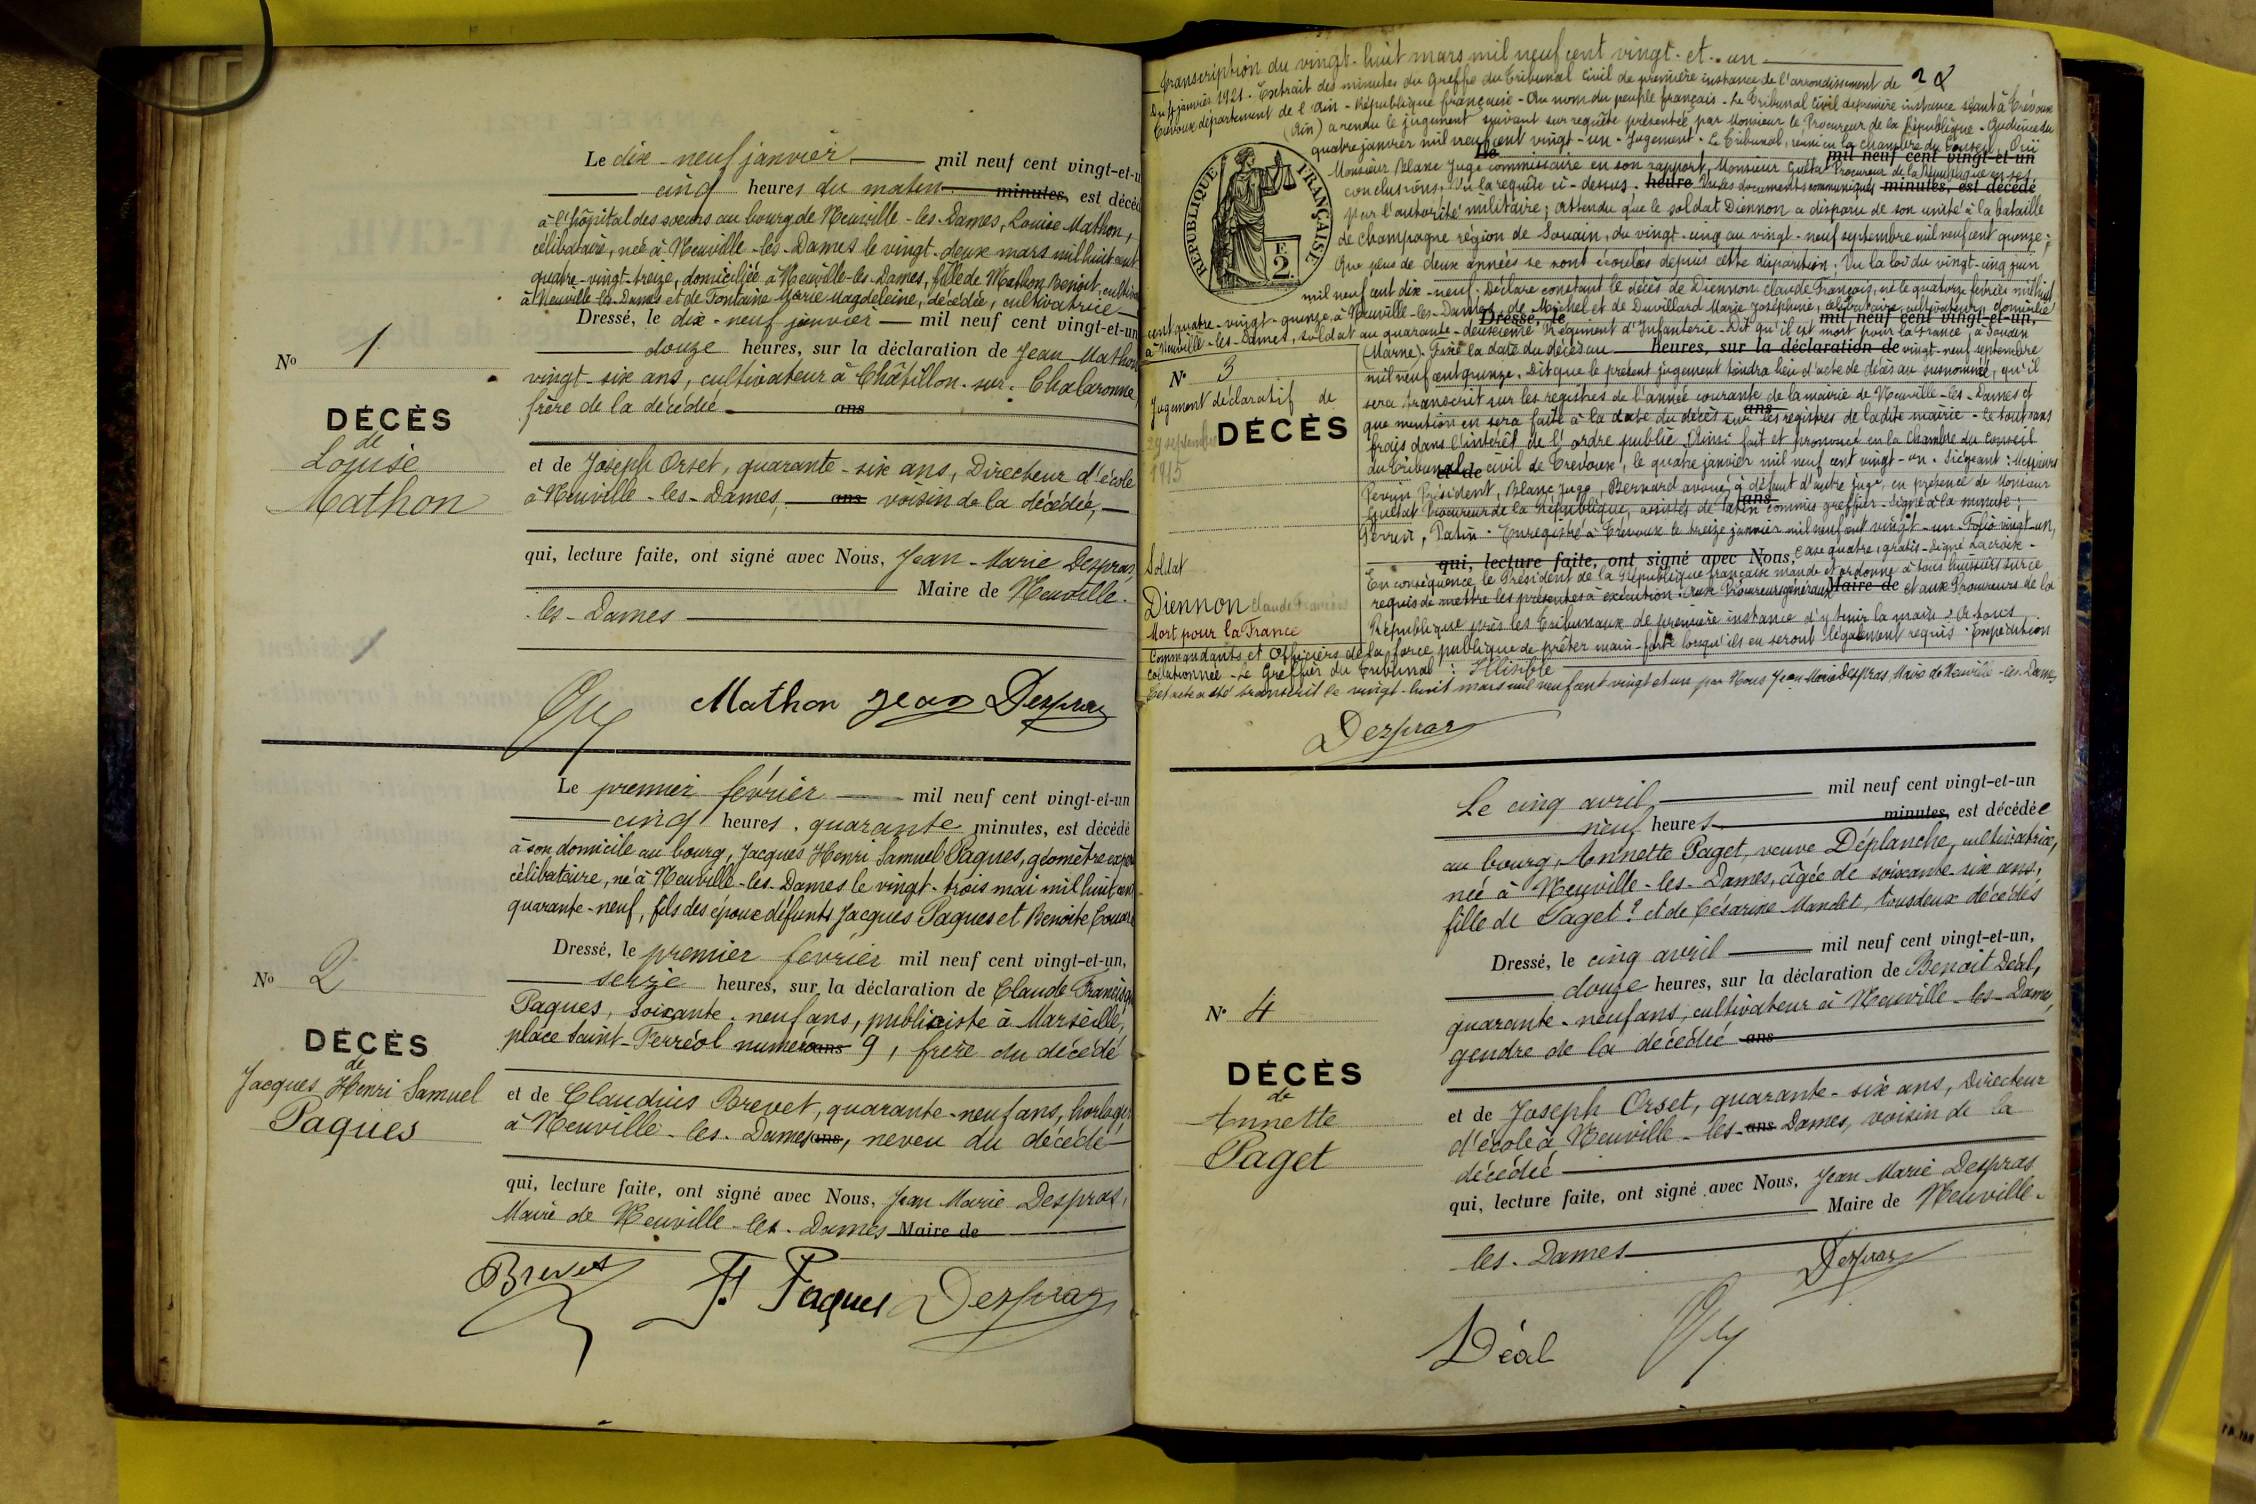 Le dix-neuf janvier — mil neuf cent vingt-et-u
cinq heures du matin minutes, est décéd
à l'hôpital des soeurs au bourg de Neuville-les-Dames, Louise Mathon,
célibataire, née à Neuville-les-Dames le vingt-deux mars mil huit cent
quatre-vingt-treize, domiciliée à Neuville-les-Dames, fille de Mathon Benoit, cultiva
à Neuville-les-Dames et de Fontaine Marie Magdeleine, décédée, cultivatrice
Dressé, le dix-neuf janvier — mil neuf cent vingt-et-un
douze heures, sur la déclaration de Jean Mathon
vingt-six ans, cultivateur à Châtillon-sur-Chalaronne,
frère de la décédée ans
et de Joseph Orset, quarante-six ans, Directeur d'école
à Neuville-les-Dames, ans voisin de la décédée,
qui, lecture faite, ont signé avec Nous, Jean-Marie Despras
Maire de Neuville-
les-Dames
No 1
DÉCÈS
de
Louise
Mathon
Mathon Jean Despras
Le premier février — mil neuf cent vingt-et-un
cinq heures, quarante minutes, est décédé
à son domicile au bourg, Jacques Henri Samuel Paques, géomètre expe
célibataire, né à Neuville-les-Dames le vingt-trois mai mil huit cent
quarante-neuf, fils des époux défunts Jacques Paques et Benoite
Dressé, le premier février mil neuf cent vingt-et-un,
seize heures, sur la déclaration de Claude Francisque
Paques, soixante-neuf ans, publiciste à Marseille,
place Saint-Ferréol numéro ans 9, frère du décédé
et de Claudius Brevet, quarante-neuf ans, horloger
à Neuville-les-Dames ans, neveu du décédé
qui, lecture faite, ont signé avec Nous, Jean Marie Despras,
Maire de Neuville-les-Dames Maire de
No 2
DÉCÈS
de
Jacques Henri Samuel
Paques
Brevet F. Paques Despras
Transcription du vingt-huit mars mil neuf cent vingt-et-un
Du 4 janvier 1921. Extrait des minutes du Greffe du Tribunal Civil de première instance de l'arrondissement de
Trévoux département de l'Ain - République française - Au nom du peuple français - Le Tribunal Civil de première instance séant à Trévoux
(Ain) a rendu le jugement suivant sur requête présentée par Monsieur le Procureur de la République - Audience du
quatre janvier mil neuf cent vingt-un - Jugement - Le Tribunal, réuni en la chambre du Conseil, Ouï
Le mil neuf cent vingt-et-un
Monsieur Blanc Juge commissaire en son rapport, Monsieur Guétat Procureur de la République en ses
conclusions. Vu la requête ci-dessus. heure Vu les documents communiqués minutes, est décédé
par l'autorité militaire; attendu que le soldat Diennon a disparu de son unité à la bataille
de Champagne région de Souain, du vingt-cinq au vingt-neuf septembre mil neuf cent quinze;
Que plus de deux années se sont écoulées depuis cette disparition. Vu la loi du vingt-cinq juin
mil neuf cent dix-neuf. Déclare constant le décès de Diennon Claude François, né le quatorze février mil huit
cent quatre-vingt-quinze, à Neuville-les-Dames, de Michel et de Duvillard Marie Joséphine, célibataire, cultivateur, domicilié
Dressé, le mil neuf cent vingt-et-un,
à Neuville-les-Dames, soldat au quarante-deuxième Régiment d'Infanterie - Dit qu'il est mort pour la France, à Souain
(Marne). Fixe la date du décès au heures, sur la déclaration de vingt-neuf septembre
mil neuf cent quinze. Dit que le présent jugement tiendra lieu d'acte de décès au susnommé, qu'il
sera transcrit sur les registres de l'année courante de la mairie de Neuville-les-Dames et
que mention en sera faite à la date du décès sur ans les registres de ladite mairie - Le tout sans
frais dans l'intérêt de l'ordre public. Ainsi fait et prononcé en la Chambre du Conseil
du Tribunal et de civil de Trévoux, le quatre janvier mil neuf cent vingt-un. Siégeant: Messieurs
Perrin Président, Blanc Juge, Bernard avoué à défaut d'autre Juge, en présence de Monsieur
Guétat Procureur de la République, assistés de Patin ans commis greffier - Signé à la minute:
Perrin, Patin. Enregistré à Trévoux le treize janvier mil neuf cent vingt-un Folio vingt-un,
qui, lecture faite, ont signé avec Nous, case quatre, gratis - Signé Lacroix -
En conséquence le Président de la République française mande et ordonne à tous huissiers sur ce
requis de mettre les présentes à exécution: Aux Procureurs généraux Maire de et aux Procureurs de la
République près les Tribunaux de première instance d'y tenir la main; A tous
Commandants et Officiers de la force publique de prêter main-forte lorsqu'ils en seront légalement requis. Expédition
collationnée - Le Greffier du Tribunal: Illisible
Cet acte a été transcrit le vingt-huit mars mil neuf cent vingt et un par Nous Jean-Marie Despras, Maire de Neuville-les-Dames
RÉPUBLIQUE FRANÇAISE
E
2.
No 3
Jugement déclaratif de
DÉCÈS
29 septembre
1915
Soldat
Diennon Claude François
Mort pour la France
Despras
Le cinq avril mil neuf cent vingt-et-un
neuf heures minutes, est décédée
au bourg, Annette Paget, veuve Déplanche, cultivatrice,
née à Neuville-les-Dames, âgée de soixante-six ans,
fille de Paget? et de Césarine Mandet, tous deux décédés
Dressé, le cinq avril mil neuf cent vingt-et-un,
douze heures, sur la déclaration de Benoit Déal,
quarante-neuf ans, cultivateur à Neuville-les-Dames,
gendre de la décédée ans
et de Joseph Orset, quarante-six ans, Directeur
d'école à Neuville-les-ans Dames, voisin de la
décédée
qui, lecture faite, ont signé avec Nous, Jean Marie Despras
Maire de Neuville-
les-Dames
No 4
DÉCÈS
de
Annette
Paget
Despras
Déal